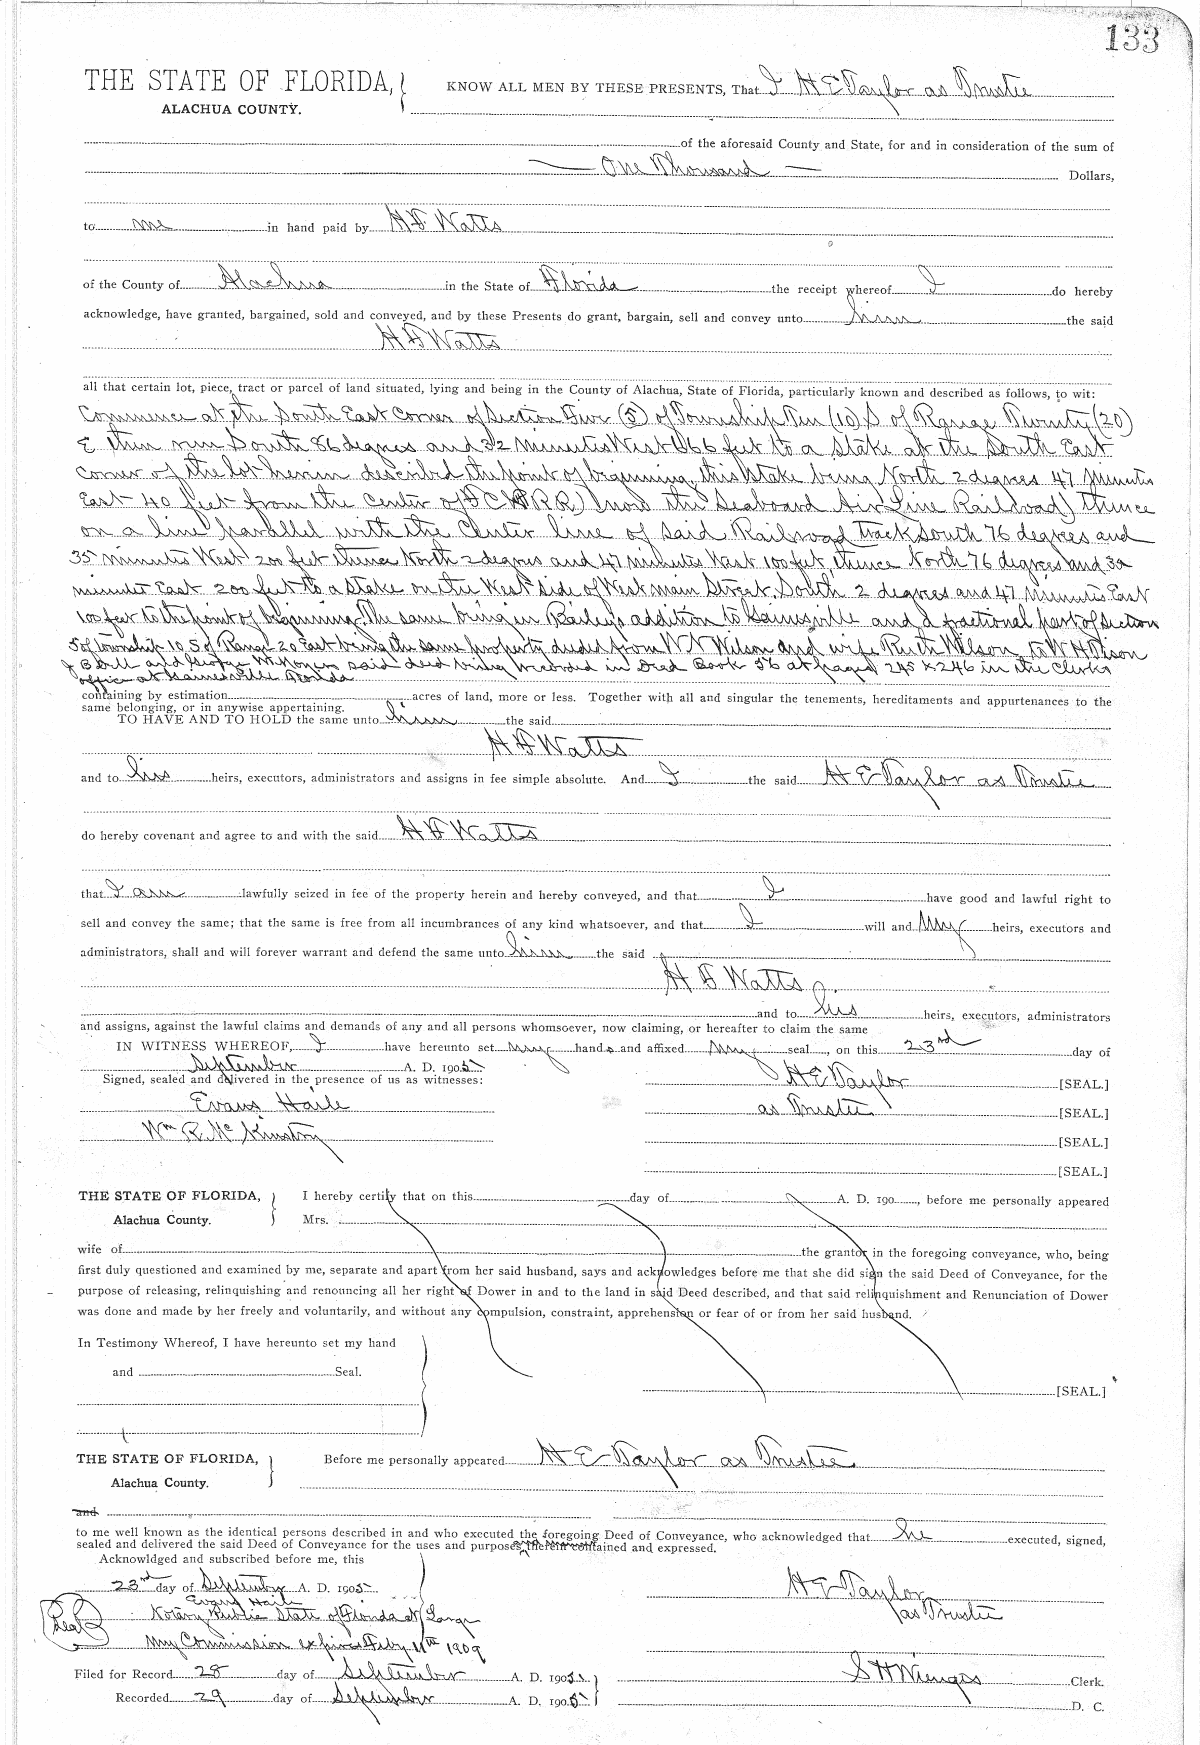 133
THE STATE OF FLORIDA, KNOW ALL MEN BY THESE PRESENTS, That I H E Taylor as Trustee
ALACHUA COUNTY.
of the aforesaid County and State, for and in consideration of the sum of
One Thousand Dollars,
to me in hand paid by H F Watts
of the County of Alachua in the State of Florida the receipt whereof I do hereby
acknowledge, have granted, bargained, sold and conveyed, and by these Presents do grant, bargain, sell and convey unto him the said
H F Watts
all that certain lot, piece, tract or parcel of land situated, lying and being in the County of Alachua, State of Florida, particularly known and described as follows, to wit:
Commence at the South East Corner of Section Five (5) of Township Ten (10) S of Range Twenty (20)
E then run South 86 degrees and 32 minutes West 1666 feet to a stake at the South East
corner of the lot herein described the point of beginning, this stake being North 2 degrees 47 minutes
East 40 feet from the center of R R (now the Seaboard Air Line Railroad) thence
on a line parallel with the center line of said Railroad track South 76 degrees and
35 minutes West 200 feet thence North 2 degrees and 47 minutes West 100 feet, thence North 76 degrees and 32
minutes East 200 feet to a stake on the West side of West main Street, South 2 degrees and 47 minutes East
100 feet to the point of beginning. The same being in Bailey's addition to Gainesville and a fractional part of Section
5 of Township 10 S of Range 20 East being the same property deeded from W N Wilson and wife Ruth Wilson, to W H Dison
J B Dell and George W said deed being recorded in Deed Book 56 at pages 245 & 246 in the Clerks
office at Gainesville Florida
containing by estimation acres of land, more or less. Together with all and singular the tenements, hereditaments and appurtenances to the
same belonging, or in anywise appertaining.
TO HAVE AND TO HOLD the same unto him the said
H F Watts
and to his heirs, executors, administrators and assigns in fee simple absolute. And I the said H E Taylor as Trustee
do hereby covenant and agree to and with the said H F Watts
that I am lawfully seized in fee of the property herein and hereby conveyed, and that I have good and lawful right to
sell and convey the same; that the same is free from all incumbrances of any kind whatsoever, and that I will and my heirs, executors and
administrators, shall and will forever warrant and defend the same unto him the said
H F Watts
and to his heirs, executors, administrators
and assigns, against the lawful claims and demands of any and all persons whomsoever, now claiming, or hereafter to claim the same
IN WITNESS WHEREOF, I have hereunto set my hand and affixed my seal, on this 23rd day of
September A. D. 1905
Signed, sealed and delivered in the presence of us as witnesses: H E Taylor [SEAL.]
Evans Haile as Trustee [SEAL.]
Wm R McKinstry [SEAL.]
[SEAL.]
THE STATE OF FLORIDA, I hereby certify that on this day of A. D. 190, before me personally appeared
Alachua County. Mrs.
wife of the grantor in the foregoing conveyance, who, being
first duly questioned and examined by me, separate and apart from her said husband, says and acknowledges before me that she did sign the said Deed of Conveyance, for the
purpose of releasing, relinquishing and renouncing all her right of Dower in and to the land in said Deed described, and that said relinquishment and Renunciation of Dower
was done and made by her freely and voluntarily, and without any compulsion, constraint, apprehension or fear of or from her said husband.
In Testimony Whereof, I have hereunto set my hand
and Seal.
[SEAL.]
THE STATE OF FLORIDA, Before me personally appeared H E Taylor as Trustee
Alachua County.
and
to me well known as the identical persons described in and who executed the foregoing Deed of Conveyance, who acknowledged that he executed, signed,
sealed and delivered the said Deed of Conveyance for the uses and purposes therein contained and expressed.
Acknowldged and subscribed before me, this
23rd day of September A. D. 1905 H E Taylor
Evans Haile as Trustee
Seal Notary Public State of Florida at Large
My Commission expires Feby 11th 1909
Filed for Record 28 day of September A. D. 1905 S H Wienges Clerk.
Recorded 29 day of September A. D. 1905 D. C.